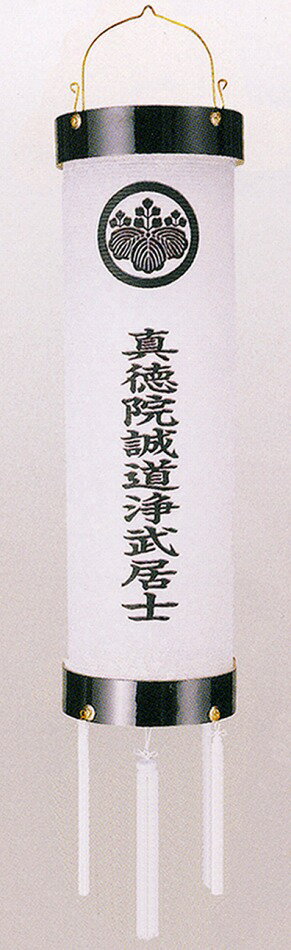 真徳院誠道浄武居士